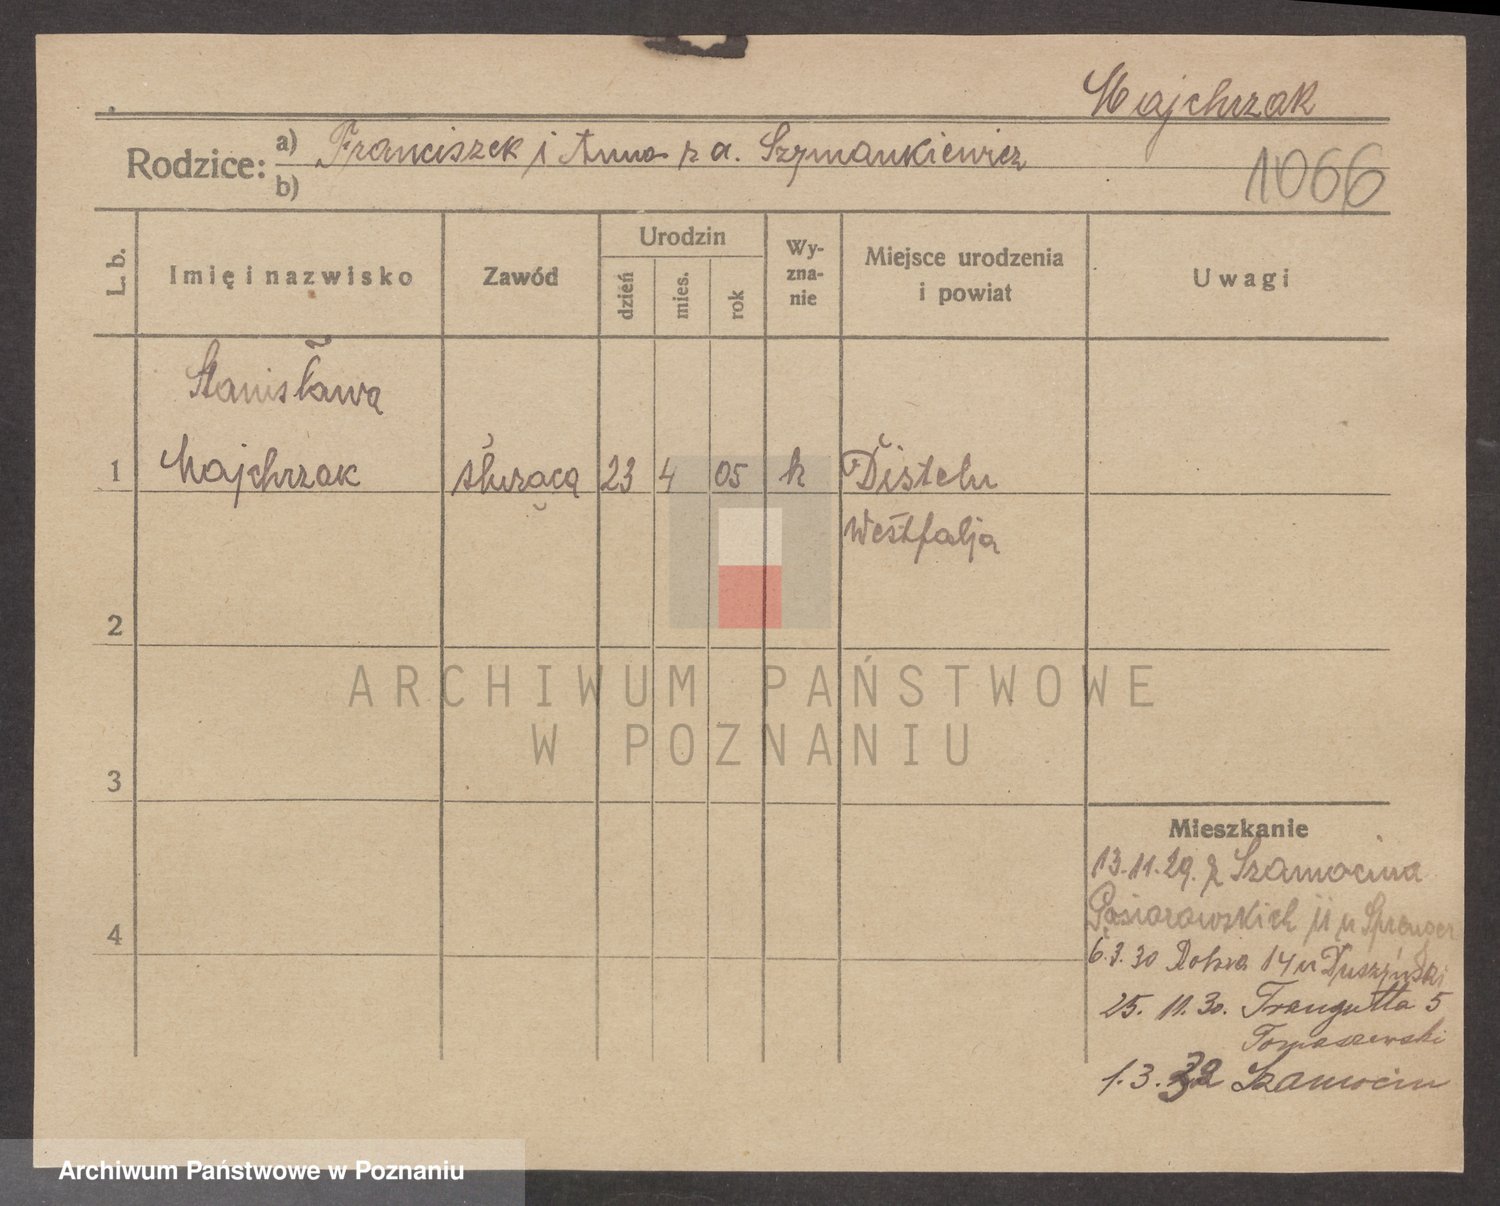 Majchrzak
Rodzice: a) Franciszek i Anna z d. Szymankiewicz
b)
1066
L. b.
Imię i nazwisko
Zawód
Urodzin
dzień
mies.
rok
Wy-
zna-
nie
Miejsce urodzenia
i powiat
Uwagi
Stanisława
1 Majchrzak służąca 23 4 05 k Disteln
Westfalja
2
ARCHIWUM PAŃSTWOWE
W POZNANIU
3
Mieszkanie
13.11.29. z Szamocina
4
11 u Sprenger
6.3.30 14 u Duszyński
25. 11. 30. Traugutta 5
Tomaszewski
1.3.32 Szamocin
Archiwum Państwowe w Poznaniu